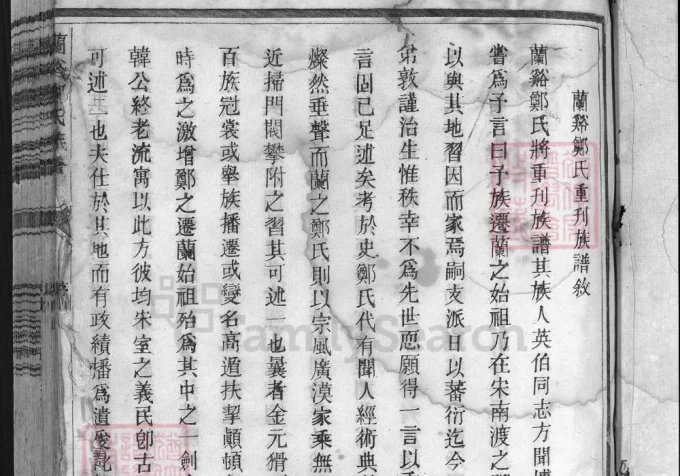 蘭谿鄭氏重刊族譜敘
蘭谿鄭氏將重刊族譜其族人英伯同志方聞博
嘗為予言曰予族遷蘭之始祖乃在宋南渡之
以與其地習因而家焉嗣支派日以蕃衍迄今
弟敦謹治生惟秩幸不為先世恧願得一言以
言固已足述矣考於史鄭氏代有聞人經術典
燦然垂聲而蘭之鄭氏則以宗風廣漠家乘無
近掃門閥攀附之習其可述一也曩者金元猾
百族冠裳或舉族播遷或變名高遁扶挈顛頓
時為之激增鄭之遷蘭始祖殆為其中之一劍
韓公終老流寓以此方彼均宋室之義民卽古
可述二也夫仕於其地而有政績播為遺愛訛
FamilySearch